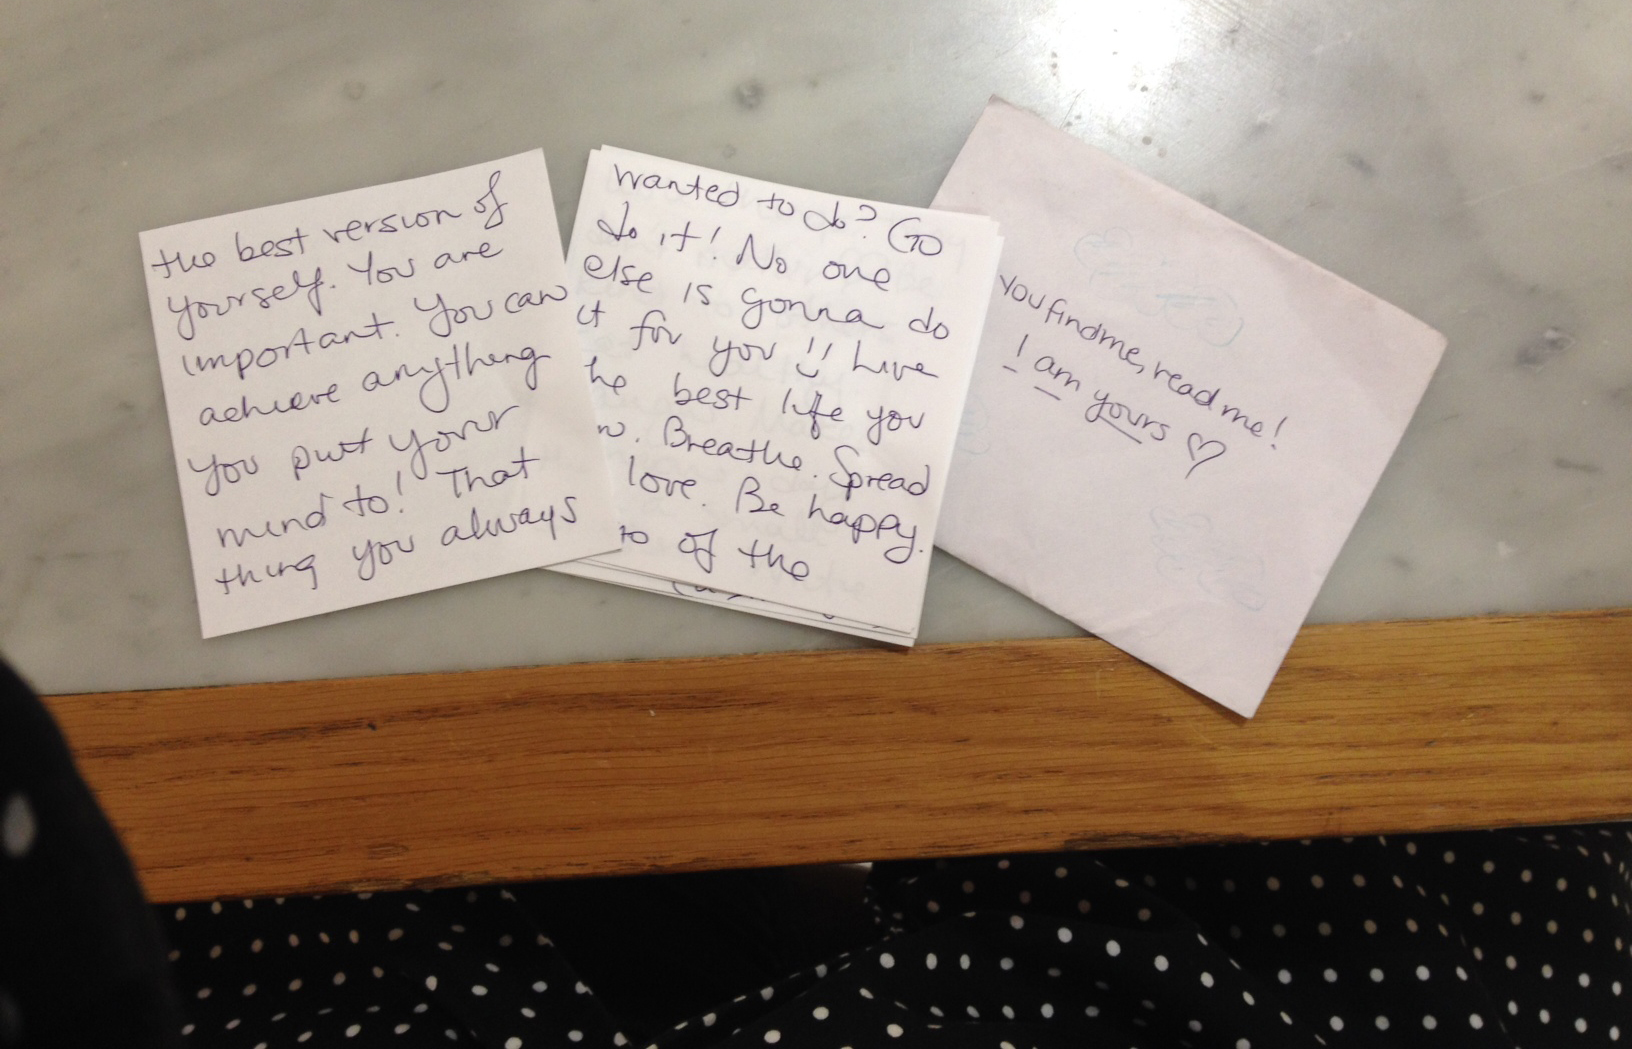 the best version of
yourself. You are
important. You can
achieve anything
you putt your
mind to! That
thing you always
wanted to do? Go
do it! No one
else is gonna do
it for you !! Live
he best life you
Breathe. Spread
love. Be happy.
to of the
you find me, read me!
I am yours ♡